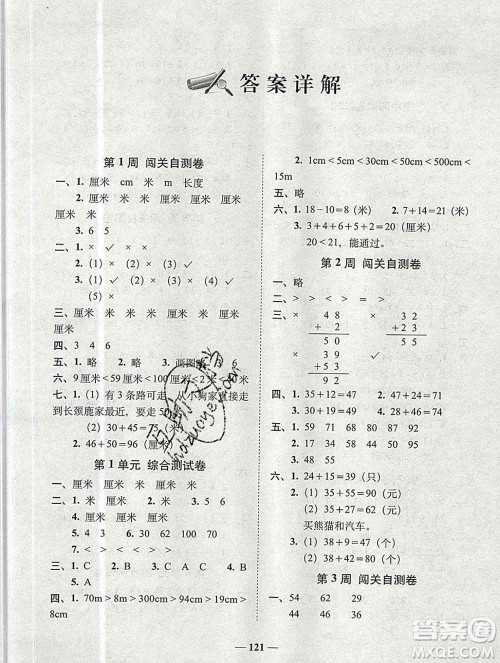 答案详解
第1周 闯关自测卷
一、1. 厘米 cm 米 m 长度
2. 厘米 米 厘米 米 厘米 厘米
3. 6 5
二、1. × ✓ × ×
2. (1) × (2) × (3) ✓ (4) ✓
(5) ×
三、厘米 米 厘米 厘米 厘米 米
厘米 米
四、3 4 6
五、1. 略 2. 略
六、9厘米<59厘米<100厘米
七、1. (1) 有3条路可走，从小狗家直接走
到长颈鹿家，要走50
(2) 60
2. 46+50=96(米)
第1单元 综合测试卷
一、厘米 米 米 厘米 米 厘米
二、1. 米 厘米 2. 米 3. 5 4. 6 5
6. 厘米 厘米 厘米 米
7. > < < > < =
8. 2 7 150 100
三、1. C 2. B 3. C 4. A C C
5. A
四、1. 70m>8m>300cm>94cm>19cm>
8cm
2. 1cm<5cm<30cm<50cm<500cm<
15m
五、略
六、1. 18-10=8(米) 2. 7+14=21(米)
3. 3+4+6+5+2=20(米)
20<21，能通过。
第2周 闯关自测卷
一、略
二、> > > < = <
三、× × ×
4 8 3 8 4 2
+ 2 + 5 3 + 4 8
5 0 9 1 9 0
四、1. 35+12=47 2. 47+24=71
3. 15+29=44 4. 48+46=94
五、1. 55 57 2. 49 52
3. 48 55
六、1. 24+15=39(只)
2. (1) 35+55=90(元)
(2) 35+57=92(元)
买熊猫和汽车。
3. (1) 38+9=47(个)
(2) 38+42=80(个)
第3周 闯关自测卷
一、54 62 29
44 46 36
121
答案圈
MXQE.COM